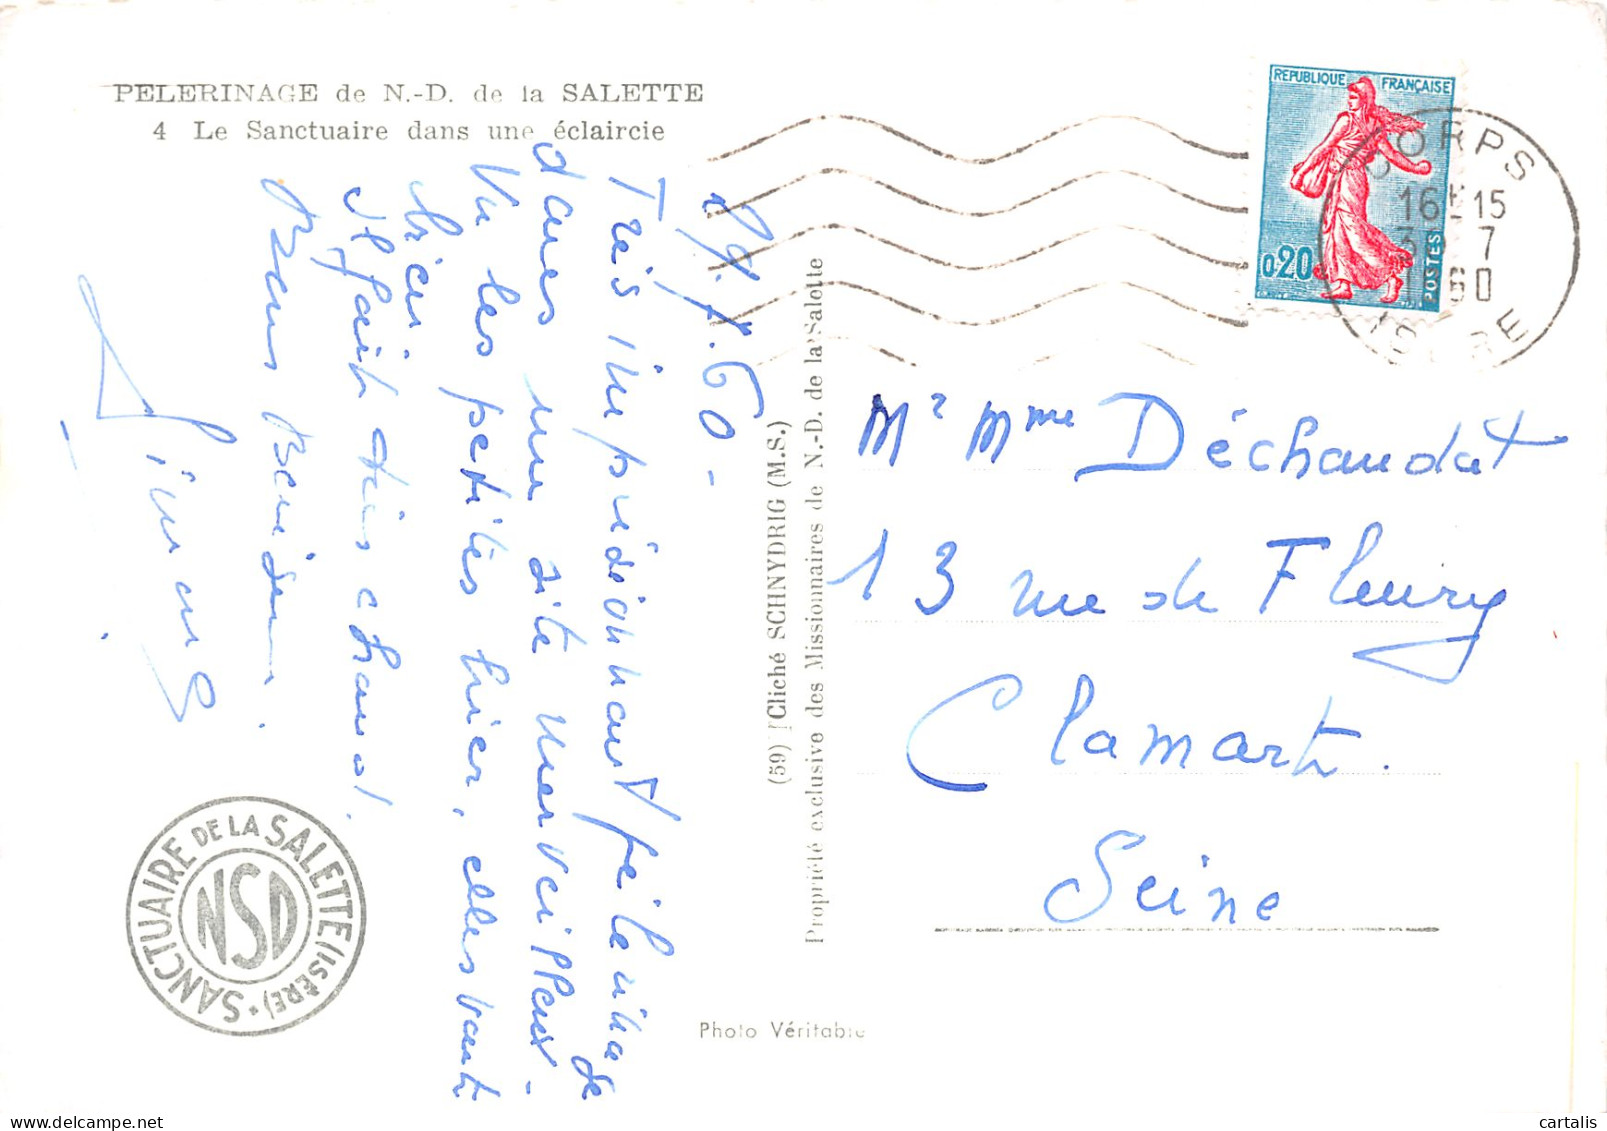 PELERINAGE de N.-D. de la SALETTE
4 Le Sanctuaire dans une éclaircie
REPUBLIQUE FRANÇAISE
0,20
POSTES
CORPS
16H15
7
60
ISERE
.7.60 -
Très impressionnant pélerinage
dans un site merveilleux -
Vu les petites hier, elles vont
bien
Il fait très chaud.
Bons Baisers.
(59) Cliché SCHNYDRIG (M.S.)
Propriété exclusive des Missionnaires de N.-D. de la Salette
Mr Mme Déchaudat
13 rue de Fleury
Clamart.
Seine
SANCTUAIRE DE LA SALETTE (ISÈRE)
NSD
Photo Véritable
cartalis